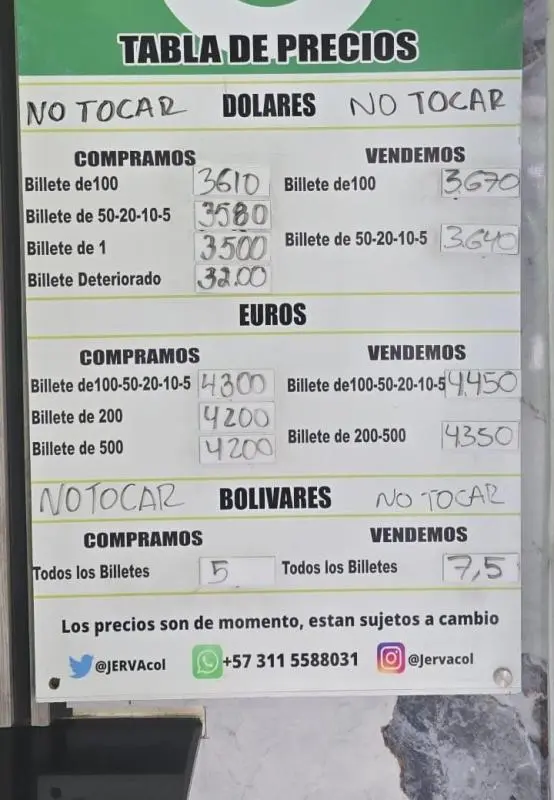 TABLA DE PRECIOS
NO TOCAR DOLARES NO TOCAR
COMPRAMOS VENDEMOS
Billete de100 3610 Billete de100 3.670
Billete de 50-20-10-5 3580 Billete de 50-20-10-5 3.640
Billete de 1 3500
Billete Deteriorado 32.00
EUROS
COMPRAMOS VENDEMOS
Billete de100-50-20-10-5 4300 Billete de100-50-20-10-5 4.450
Billete de 200 4200 Billete de 200-500 4350
Billete de 500 4200
NO TOCAR BOLIVARES NO TOCAR
COMPRAMOS VENDEMOS
Todos los Billetes 5 Todos los Billetes 7,5
Los precios son de momento, estan sujetos a cambio
@JERVAcol +57 311 5588031 @Jervacol